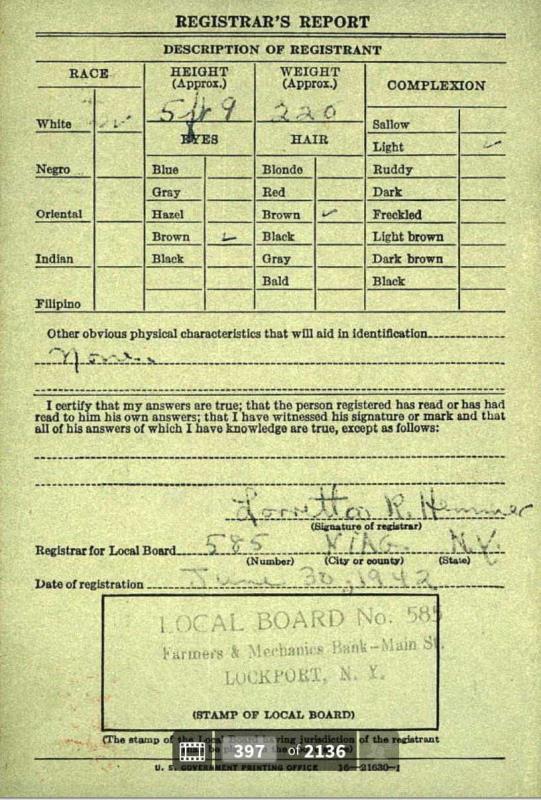 REGISTRAR'S REPORT
DESCRIPTION OF REGISTRANT
RACE
HEIGHT
(Approx.)
WEIGHT
(Approx.)
COMPLEXION
5 ft 9
220
EYES
HAIR
White
Negro
Oriental
Indian
Filipino
Blue
Gray
Hazel
Brown ✓
Black
Blonde
Red
Brown ✓
Black
Gray
Bald
Sallow
Light ✓
Ruddy
Dark
Freckled
Light brown
Dark brown
Black
Other obvious physical characteristics that will aid in identification
None
I certify that my answers are true; that the person registered has read or has had
read to him his own answers; that I have witnessed his signature or mark and that
all of his answers of which I have knowledge are true, except as follows:
Lorretta R. Hemmer
(Signature of registrar)
Registrar for Local Board 585 NIAG. N.Y.
(Number) (City or county) (State)
Date of registration June 30, 1942
LOCAL BOARD No. 585
Farmers & Mechanics Bank-Main St.
LOCKPORT, N. Y.
(STAMP OF LOCAL BOARD)
(The stamp of the Local Board having jurisdiction of the registrant
397 of 2136
U. S. GOVERNMENT PRINTING OFFICE 16-21630-1